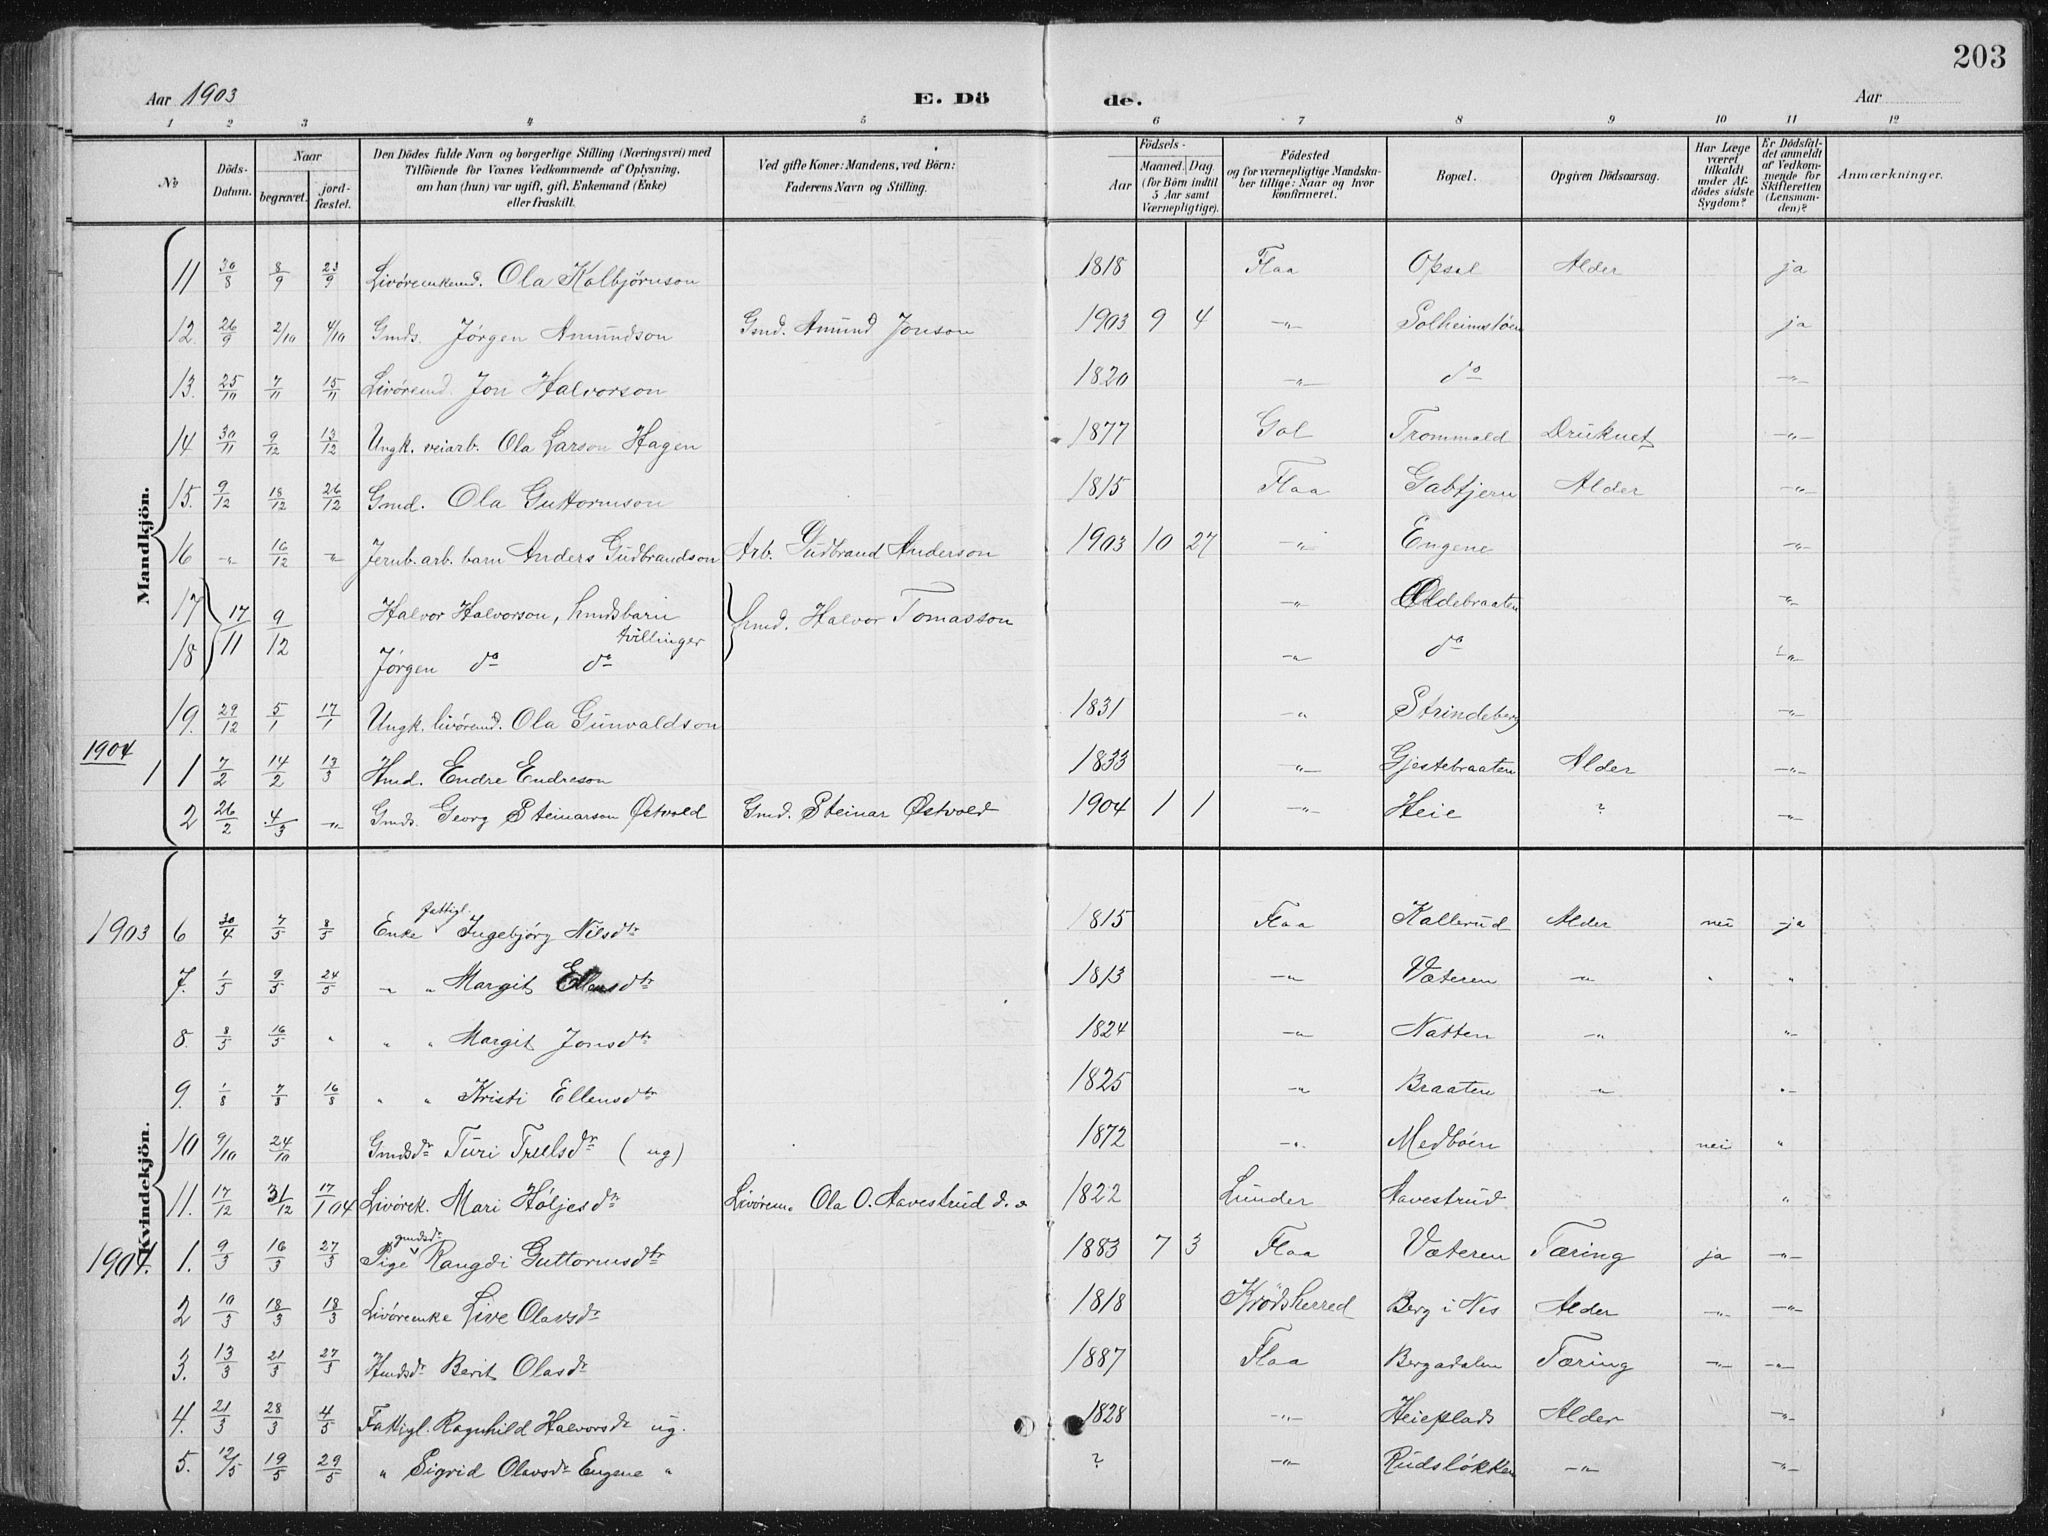 203
Aar 1903 E. Dö de. Aar
1 2 3 4 5 6 7 8 9 10 11 12
No. Döds-Datum. Naar begravet. jord-fæstet. Den Dödes fulde Navn og borgerlige Stilling (Næringsvei) med Tilföiende for Voxnes Vedkommende af Oplysning, om han (hun) var ugift, gift, Enkemand (Enke) eller fraskilt. Ved gifte Koner: Mandens, ved Börn: Faderens Navn og Stilling. Födsels- Aar Maaned. Dag (for Börn indtil 5 Aar samt Værnepligtige). Födested og for værnepligtige Mandskaber tillige: Naar og hvor konfirmeret. Bopæl. Opgiven Dödsaarsag. Har Læge været tilkaldt under Afdödes sidste Sygdom? Er Dödsfaldet anmeldt af Vedkommende for Skifteretten (Lensmanden)? Anmærkninger.
Mandkjön.
11 30/8 8/9 23/9 Livøreenkemd. Ola Kolbjørnson 1818 Flaa Opsal Alder ja
12. 26/9 2/10 4/10 Gmds. Jørgen Amundson Gmd. Amund Jonson 1903 9 4 -"- Solheimstøen ja
13. 25/10 7/11 15/11 Livøremd. Jon Halvorson 1820 -"- do -"-
14 30/11 9/12 13/12 Ungk. veiarb. Ola Larson Hagen 1877 Gol Trommald Druknet -"-
15. 9/12 18/12 26/12 Gmd. Ola Guttormson 1815 Flaa Gabtjern Alder -"-
16 -"- 16/12 -"- Jernb.arb. barn Anders Gudbrandson Arb. Gudbrand Anderson 1903 10 27 -"- Engene -"-
17 17/11 9/12 Halvor Halvorson, hmdsbarn tvillinger hmd. Halvor Tomasson -"- Oldebraaten -"-
18 Jørgen do do -"- do -"-
19. 29/12 5/1 17/1 Ungk. livøremd. Ola Gunvaldson 1831 -"- Strindeberg -"-
1904
1 1 7/2 14/2 13/3 Hmd. Endre Endreson 1833 -"- Gjestebraaten Alder -"-
2 26/2 4/3 -"- Gmds. Georg Steinarson Østvold Gmd. Steinar Østvold 1904 1 1 -"- Heie ? -"-
Kvindekjön.
1903 6 30/4 7/5 8/5 Enke fattigl. Ingebjørg Nilsdtr 1815 Flaa Kallerud Alder nei ja
7. 1/5 9/5 24/5 -"- " Margit Ellensdtr 1813 -"- Væteren -"- " "
8. 8/5 16/5 " " " Margit Jonsdtr 1824 -"- Natten -"- -"-
9. 1/8 7/8 16/8 " " Kristi Ellensdtr 1825 -"- Braaten -"- "-
10 9/10 24/10 Gmdsdr Turi Trulsdr (ug) 1872 -"- Medbøen nei "
11. 17/12 31/12 17/1 04 Livørek. Mari Høljesdtr Livørem. Ola O. Aavestrud d. e 1822 Lunder Aavestrud "
1904. 1. 9/3 16/3 27/3 Pige gmdsdr Rangdi Guttormsdtr 1883 7 3 Flaa Væteren Tæring ja -"-
2 10/3 18/3 18/3 Livøreenke Live Olavsdr 1818 Krødsherred Berg i Nes Alder -"- -"-
3. 13/3 21/3 27/3 Hmdsdr Berit Olasdr 1887 Flaa Bergadalen Tæring -"- -"-
4. 21/3 28/3 4/5 Fattigl. Ragnhild Halvorsdr ug. 1828 -"- Heieplads Alder -"-
5. 12/5 19/5 29/5 " Sigrid Olavsdr Engene " ? -"- Rudsløkken -"- -"-